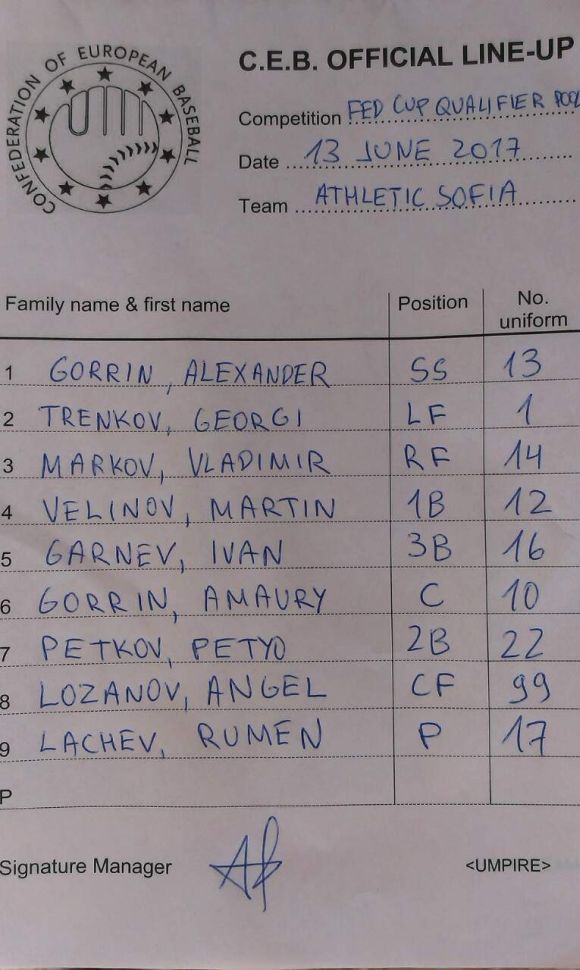 CONFEDERATION OF EUROPEAN BASEBALL
C.E.B. OFFICIAL LINE-UP
Competition FED CUP QUALIFIER POOL
Date 13 JUNE 2017
Team ATHLETIC SOFIA
Family name & first name Position No. uniform
1 GORRIN, ALEXANDER SS 13
2 TRENKOV, GEORGI LF 1
3 MARKOV, VLADIMIR RF 14
4 VELINOV, MARTIN 1B 12
5 GARNEV, IVAN 3B 16
6 GORRIN, AMAURY C 10
7 PETKOV, PETYO 2B 22
8 LOZANOV, ANGEL CF 99
9 LACHEV, RUMEN P 17
P
Signature Manager <UMPIRE>